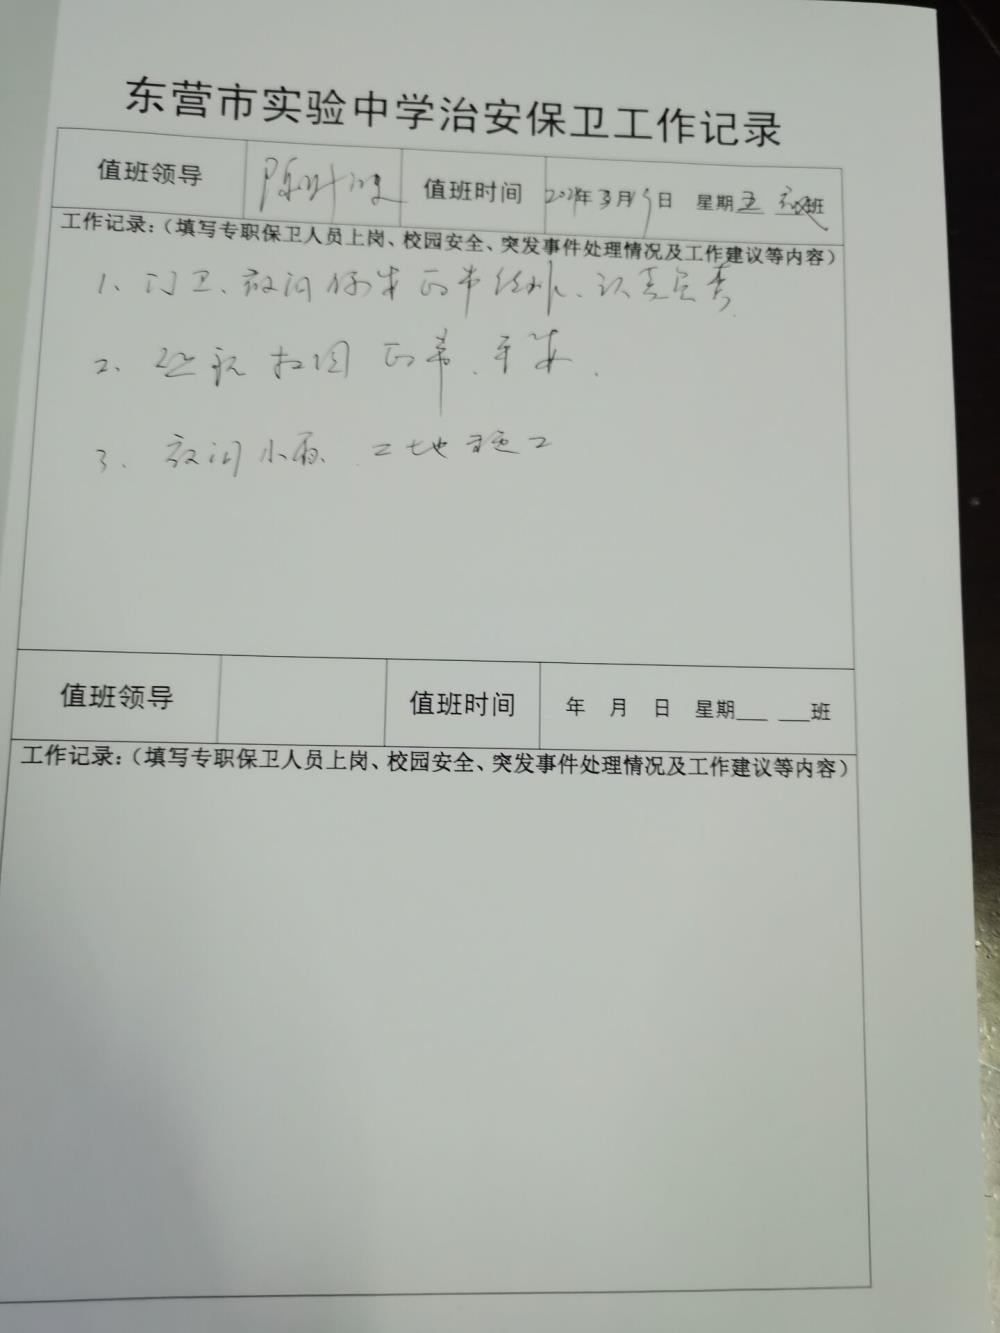 东营市实验中学治安保卫工作记录
值班领导 陈 值班时间 年3月 日 星期五 班
工作记录：（填写专职保卫人员上岗、校园安全、突发事件处理情况及工作建议等内容）
1、门卫、夜间 正常 、认真负责
2、 校园正常、平安.
3、夜间小雨、工地施工
值班领导 值班时间 年 月 日 星期___ ___班
工作记录：（填写专职保卫人员上岗、校园安全、突发事件处理情况及工作建议等内容）